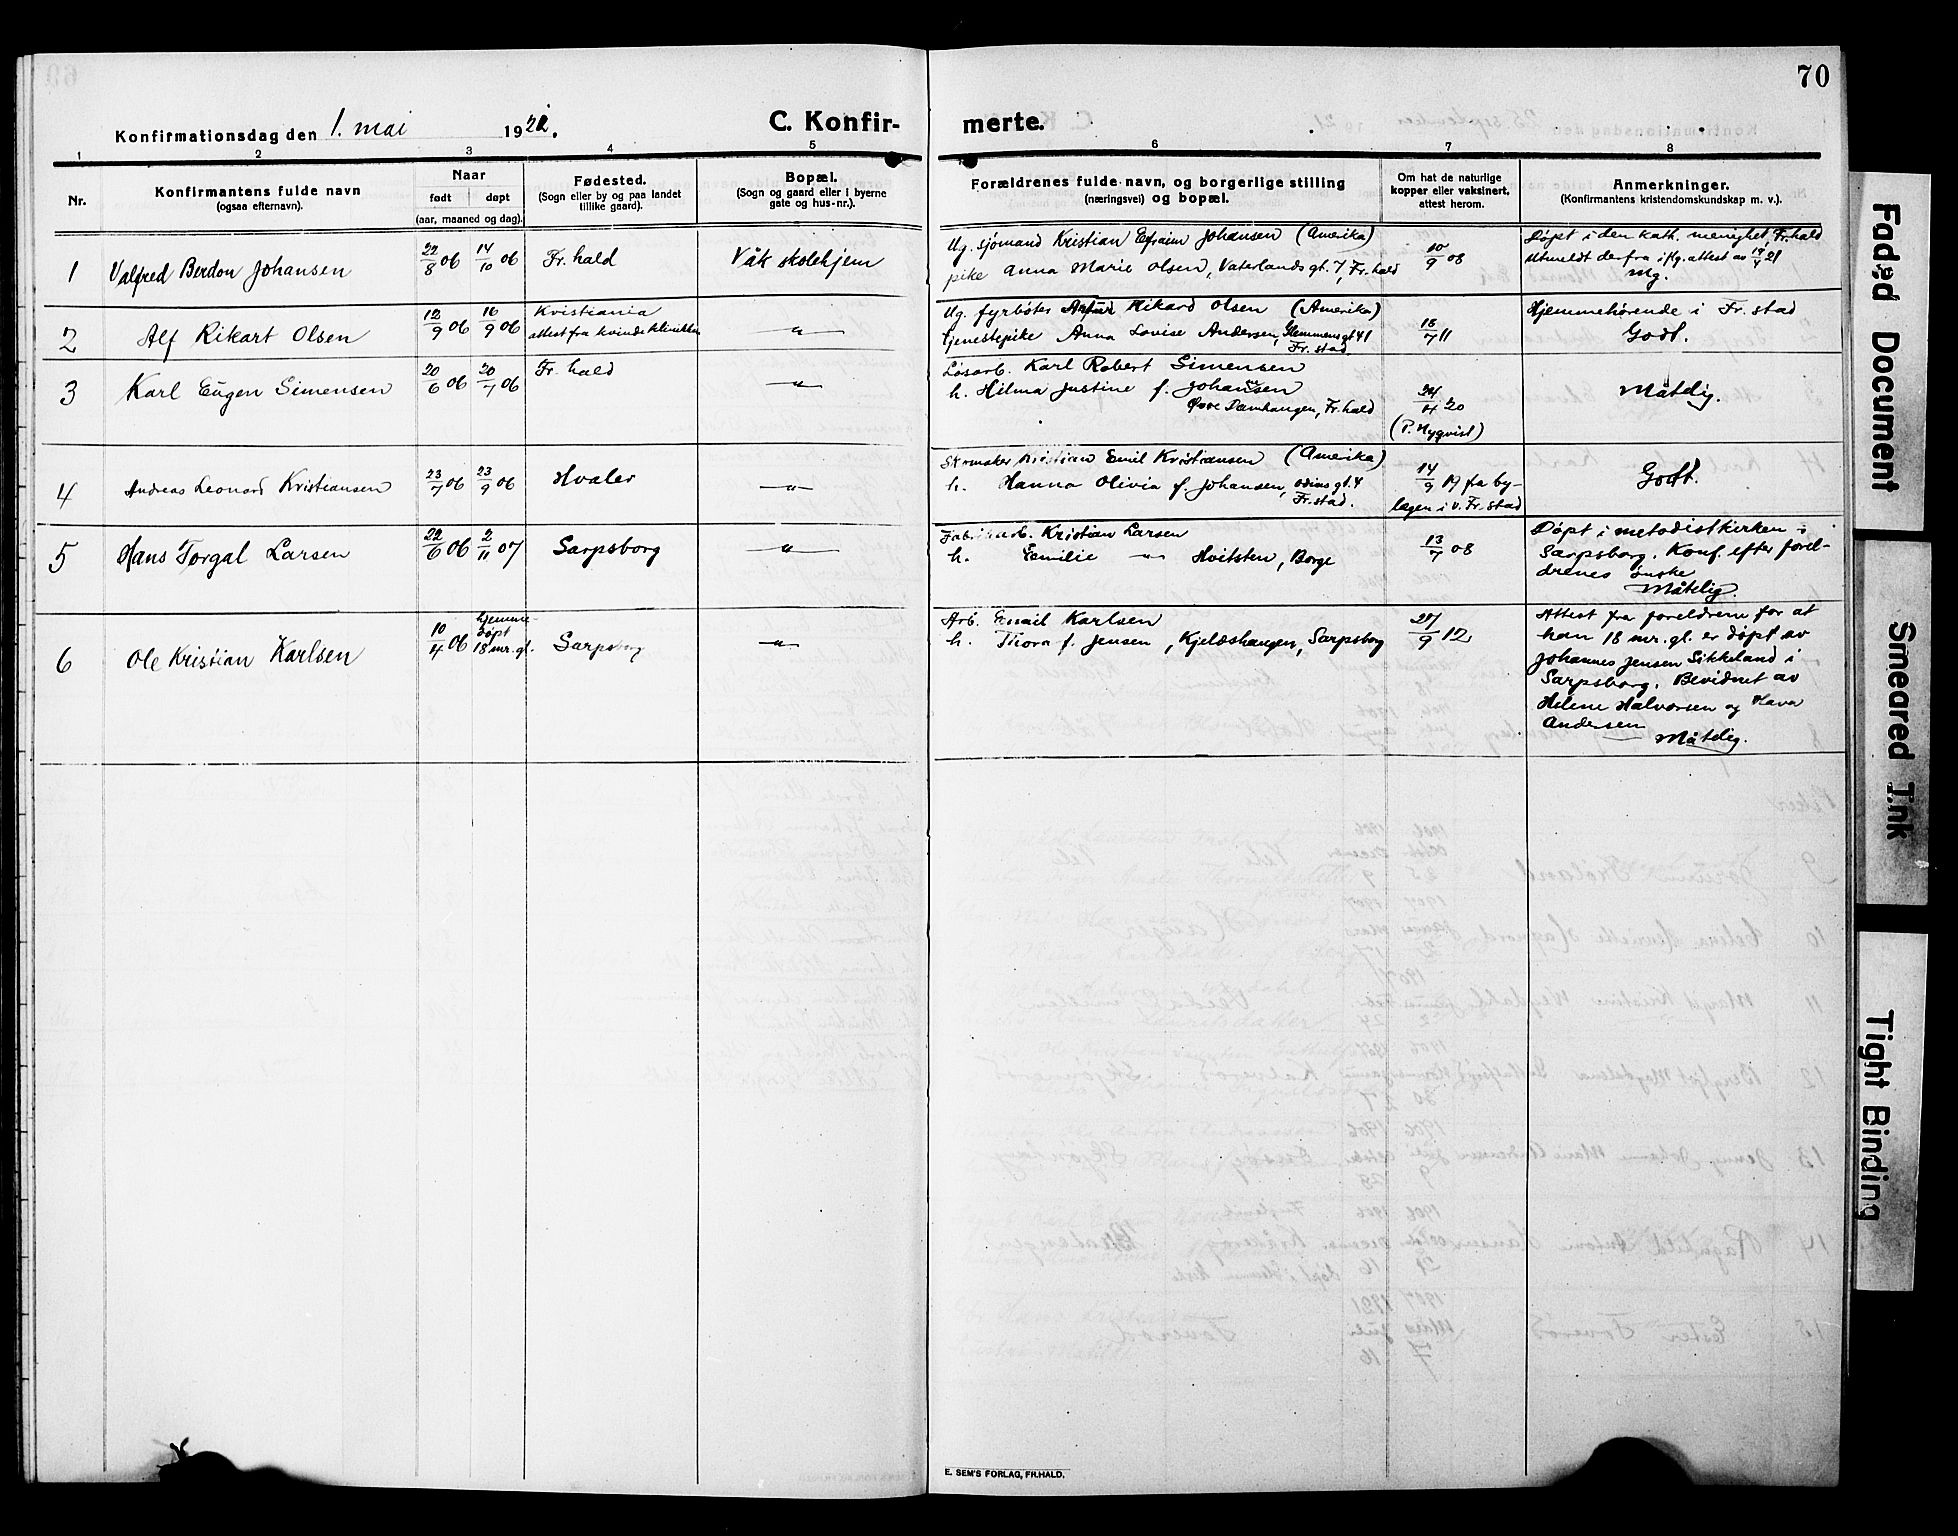 70
Konfirmationsdag den 1. mai 1921.
C. Konfir-
merte.
1 2 3 4 5 6 7 8
Nr.
Konfirmantens fulde navn
(ogsaa efternavn).
Naar
født døpt
(aar, maaned og dag).
Fødested.
(Sogn eller by og paa landet
tillike gaard).
Bopæl.
(Sogn og gaard eller i byerne
gate og hus-nr.).
Forældrenes fulde navn, og borgerlige stilling
(næringsvei) og bopæl.
Om hat de naturlige
kopper eller vaksinert,
attest herom.
Anmerkninger.
(Konfirmantens kristendomskundskap m. v.).
1 Valfred Berdon Johansen 22/8 06 14/10 06 Fr.hald Våk skolehjem
Ug. sjömand Kristian Efraim Johansen (Amerika)
pike Anna Marie Olsen, Vaterlandsgt. 7, Fr.hald
10/9 08
Döpt i den kath. menighet, Fr.hald
Utmeldt derfra iflg. attest av 19/4 21
Mg.
2 Alf Rikart Olsen 12/9 06 16/9 06 Kristiania
attest fra kvindeklinikken
— " —
Ug. fyrböter Artur Rikard Olsen (Amerika)
tjenestepike Anna Lovise Andersen, Glemmengt 41
Fr.stad
18/7 11
Hjemmehörende i Fr.stad
Godt.
3 Karl Eugen Simensen 20/6 06 20/7 06 Fr.hald — " —
Lösarb. Karl Robert Simensen
h. Hilma Justine f. Johansen
Övre Damhaugen, Fr.hald
24/4 20
(P. Nyqvist)
Måtelig.
4 Andreas Leonard Kristiansen 23/7 06 23/9 06 Hvaler — " —
Skomaker Kristian Emil Kristiansen (Amerika)
h. Hanna Olivia f. Johansen, Odins gt. 4
Fr.stad.
14/9 19 fra by-
lægen i v. Fr.stad
Godt.
5 Hans Torgal Larsen 22/6 06 2/11 07 Sarpsborg — " —
Fabrikarb. Kristian Larsen
h. Emilie — " — Hvitsten, Borge
13/7 08
Döpt i metodistkirken i
Sarpsborg. Konf. efter forel-
drenes önske
Måtelig.
6 Ole Kristian Karlsen 10/4 06 hjemme-
döpt
18 mr. gl. Sarpsborg — " —
Arb. Emil Karlsen
h. Thora f. Jensen, Kjeldshaugen, Sarpsborg
27/9 12
Attest fra foreldrene for at
han 18 mr. gl. er döpt av
Johannes Jensen Sikkeland i
Sarpsborg. Bevidnet av
Helene Halvorsen og
Andersen
Måtelig.
E. SEM'S FORLAG, FR.HALD.
Faded Document
Smeared Ink
Tight Binding